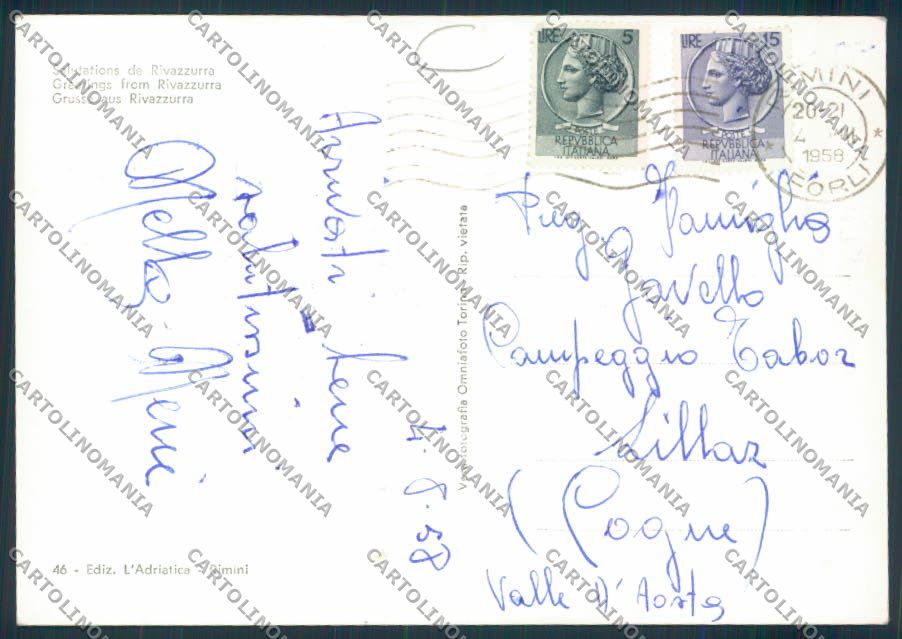 Salutations de Rivazzurra
Greetings from Rivazzurra
Grusse aus Rivazzurra
LIRE 5
POSTE
REPVBBLICA
ITALIANA
LIRE 15
POSTE
REPVBBLICA
ITALIANA
RIMINI
20-21
4
1958
FORLI
Arrivati bene
salutissimi
4.8.58
Vera fotografia Omniafoto Torino - Rip. vietata
Famiglia
Gavello
Campeggio Tabor
Lillaz
(Cogne)
Valle d'Aosta
46 - Ediz. L'Adriatica - Rimini
CARTOLINOMANIA